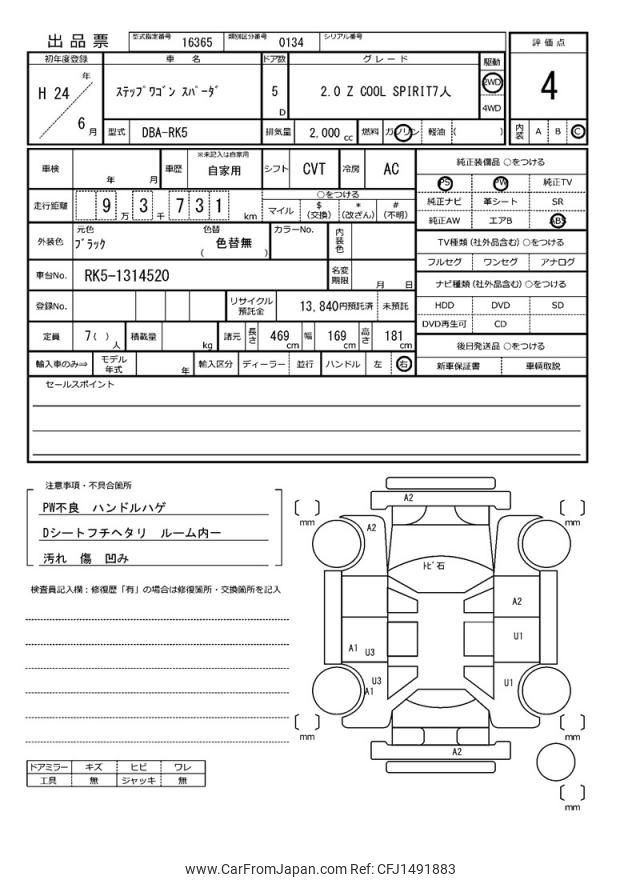 出品票 型式指定番号 16365 類別区分番号 0134 シリアル番号
評価点
4
内装 A B C
初年度登録 車名 ドア数 グレード 駆動
H 24 年 6 月 ｽﾃｯﾌﾟﾜｺﾞﾝ ｽﾊﾟｰﾀﾞ 5 D 2.0 Z COOL SPIRIT7人 2WD
4WD
型式 DBA-RK5 排気量 2,000 cc 燃料 ガソリン 軽油 ( )
車検 年 月 車歴 ※未記入は自家用 自家用 シフト CVT 冷房 AC
走行距離 9 万 3 千 7 3 1 km
○をつける
マイル $ (交換) * (改ざん) # (不明)
外装色 元色 ﾌﾞﾗｯｸ 色替 ( 色替無 ) カラーNo. 内装色
車台No. RK5-1314520 名変期限 月 日
登録No. リサイクル預託金 13,840円預託済 未預託
定員 7( ) 人 積載量 kg 諸元 長さ 469 cm 幅 169 cm 高さ 181 cm
輸入車のみ⇒ モデル年式 年 輸入区分 ディーラー 並行 ハンドル 左 右
純正装備品 ○をつける
PS PW 純正TV
純正ナビ 革シート SR
純正AW エアB ABS
TV種類 (社外品含む) ○をつける
フルセグ ワンセグ アナログ
ナビ種類 (社外品含む) ○をつける
HDD DVD SD
DVD再生可 CD
後日発送品 ○をつける
新車保証書 車輌取説
セールスポイント
注意事項・不具合箇所
PW不良 ハンドルハゲ
Dシートフチヘタリ ルーム内一
汚れ 傷 凹み
検査員記入欄：修復歴「有」の場合は修復箇所・交換箇所を記入
ドアミラー キズ ヒビ ワレ
工具 無 ジャッキ 無
A2
mm
mm
A2
ﾄﾋﾞ石
A2
A1 U3
U1
U3
A1
U1
mm
mm
A2
mm
www.CarFromJapan.com Ref: CFJ1491883